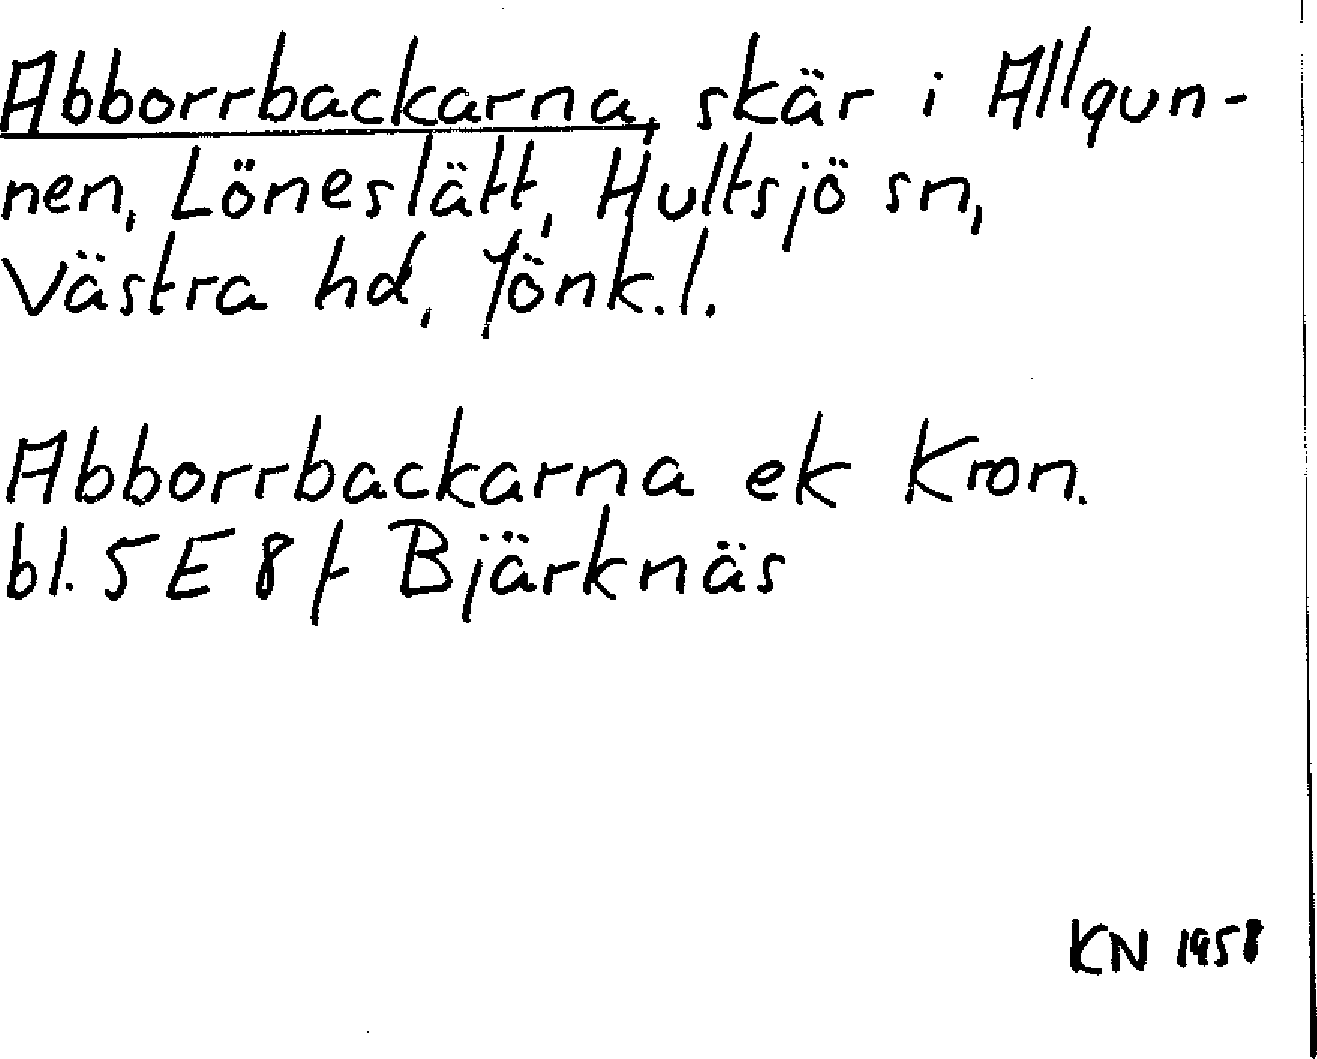 Abborrbackarna, skär i Allgun-
nen, Löneslätt, Hultsjö sn,
Västra hd, Jönk.l.
Abborrbackarna ek Kron.
bl. 5E 8f Bjärknäs
KN 1958